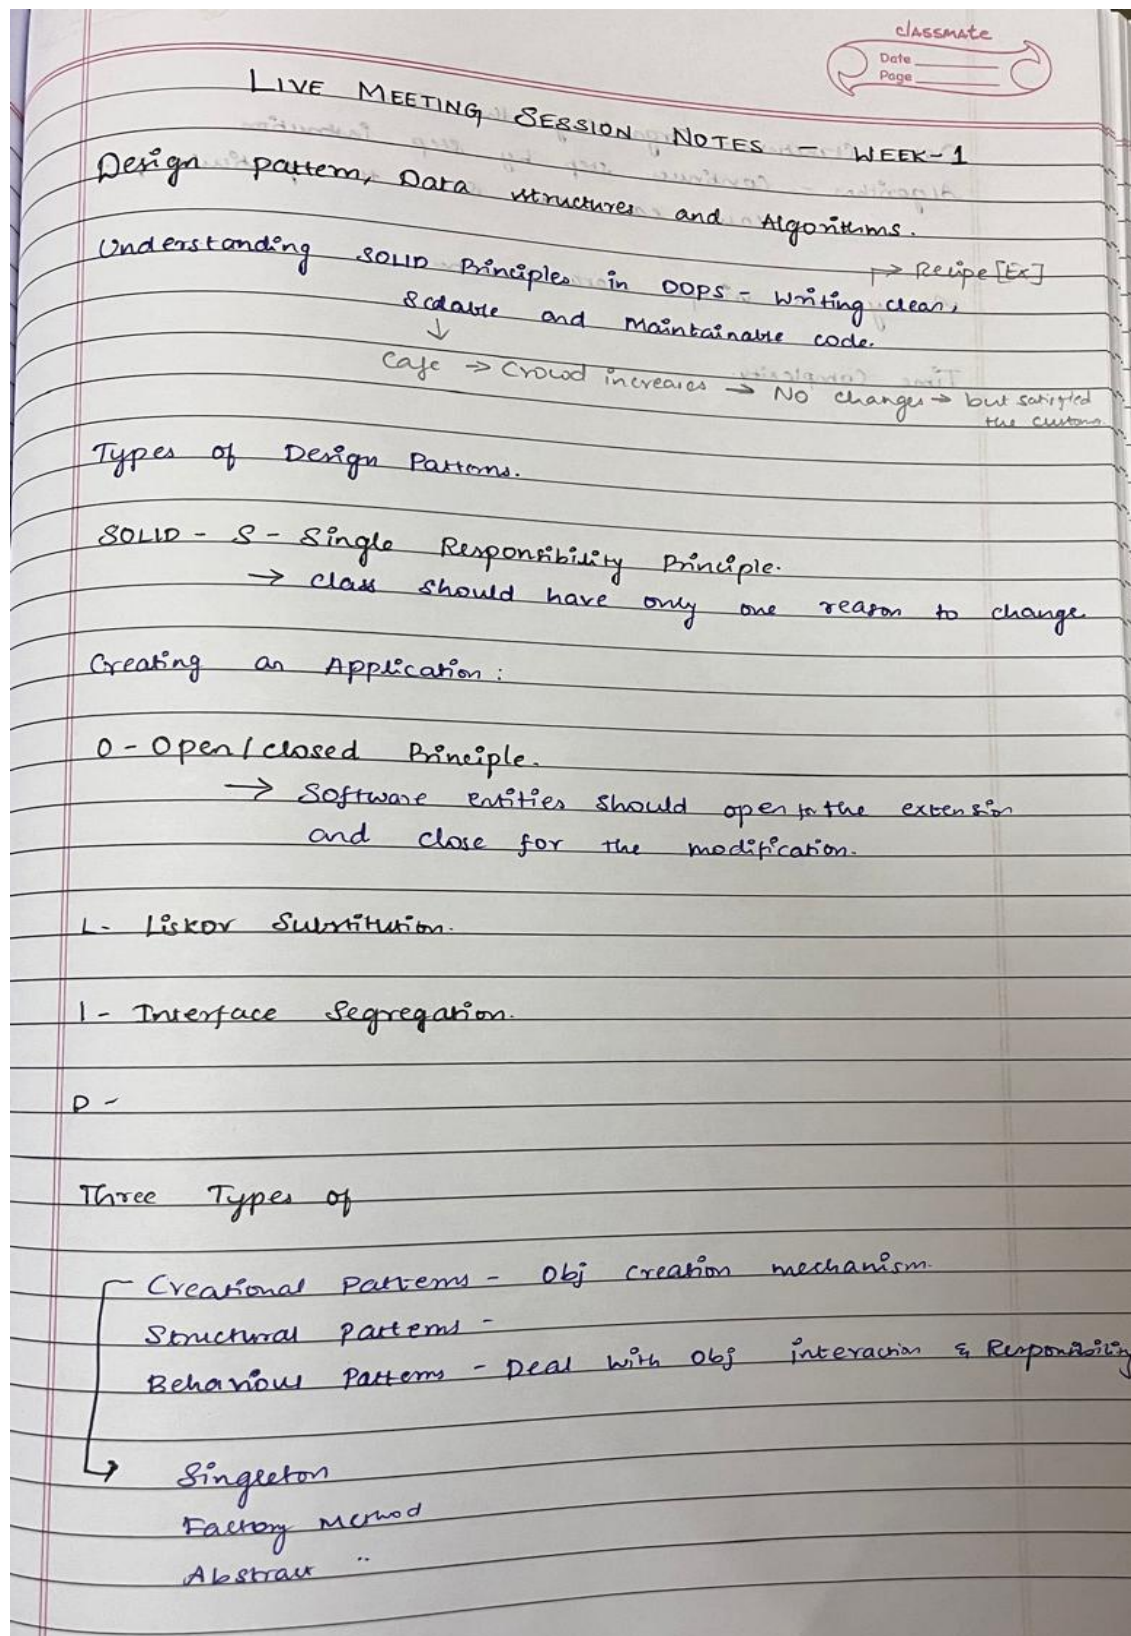 classmate
Date
Page
LIVE MEETING SESSION NOTES - WEEK-1
Design pattern, Data structures and Algorithms.
Understanding SOLID Principles in OOPS - Writing clean,
→ Recipe [Ex]
Scalable and Maintainable code.
↓
Cafe → Crowd increases → No changes → but satisfied
the custom
Types of Design Patterns.
SOLID - S - Single Responsibility Principle.
→ class should have only one reason to change
Creating an Application :
O - Open/closed Principle.
→ Software entities should open for the extension
and close for the modification.
L- Liskov Substitution.
I - Interface Segregation.
D -
Three Types of
Creational Patterns - Obj creation mechanism.
Structural patterns -
Behaviour Patterns - Deal with obj interaction & Responsibility
→ Singleton
Factory Method
Abstract "